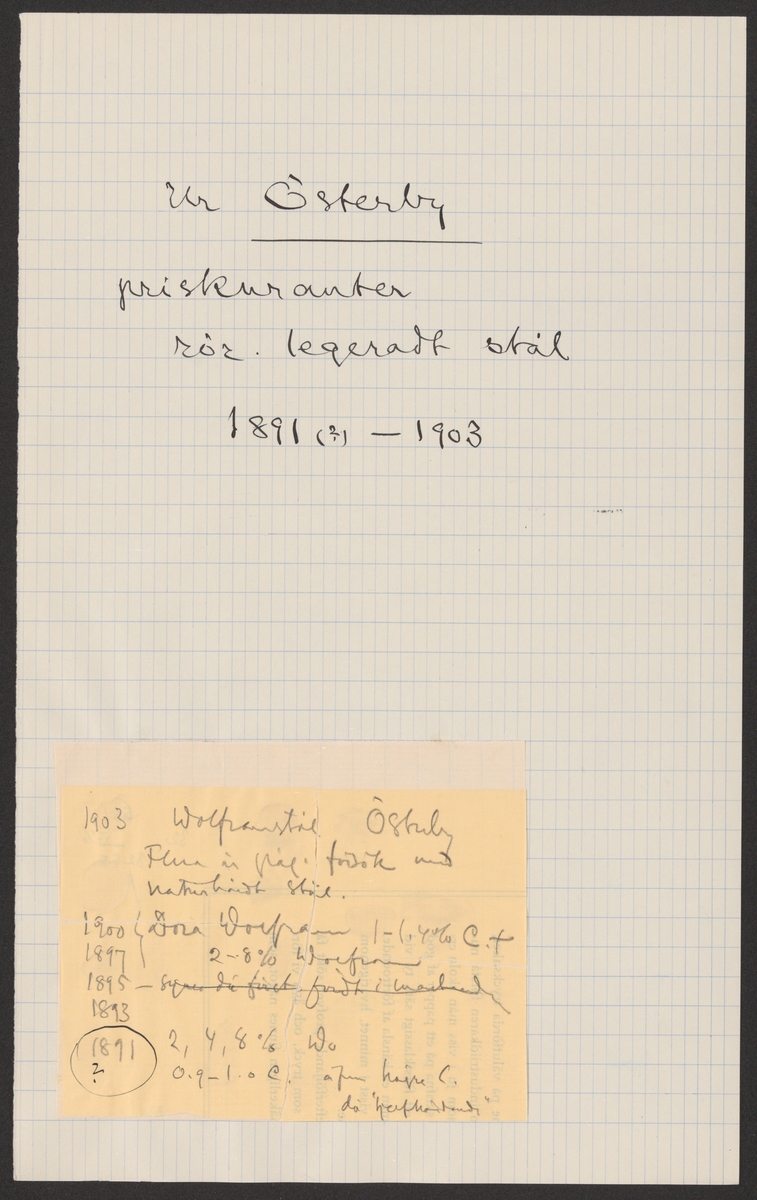 Ur Österby
priskuranter
rör. legeradt stål
1891 (?) — 1903
1903 Wolframstål Österby
Flera års försök med
naturhårdt stål.
1900 Wolfram 1–1.4% C.
1897 2–8% Wolfram
1895 – då först i
1893
1891 2, 4, 8% Wo
? 0.9–1.0 C. äfven högre C.
då "